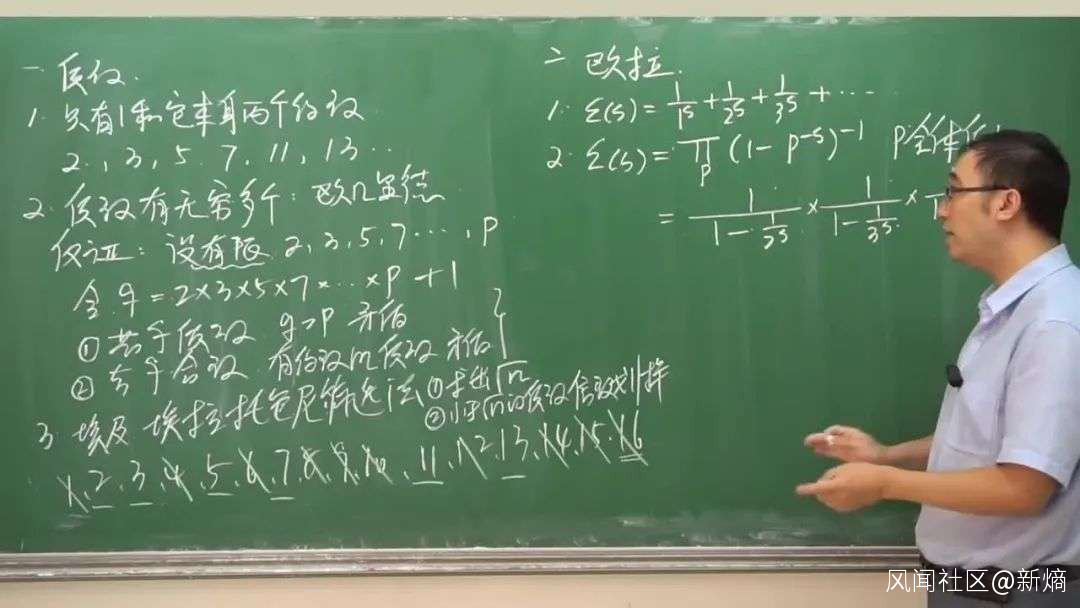 一 质数.
1. 只有1和它本身两个约数
2, 3, 5. 7, 11, 13 ··
2. 质数有无穷多个: 欧几里德
反证: 设有限 2, 3, 5, 7 ···, P
令 q = 2×3×5×7×···×P + 1
① 若q质数 q>P 矛盾
② 若q合数 有约数m质数 矛盾
3. 埃及 埃拉托色尼筛选法 ① 求出√n
② 小于√n的质数倍数划掉
1. 2. 3. 4. 5. 6. 7. 8. 9. 10. 11. 12. 13. 14. 15. 16
二 欧拉.
1. ξ(s) = 1/1^s + 1/2^s + 1/3^s + ···
2. ξ(s) = ∏_p (1 - p^-s)^-1 P全体
= 1/(1 - 1/2^s) × 1/(1 - 1/3^s) ×
风闻社区@新熵